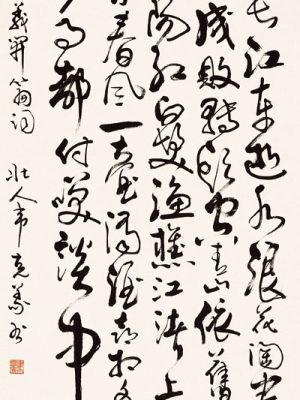 長江東逝水浪花淘盡
成敗轉頭空青山依舊
陽紅白髮漁樵江渚上
春風一壺濁酒喜相逢
事都付笑談中
翁詞 壯人韋克義書